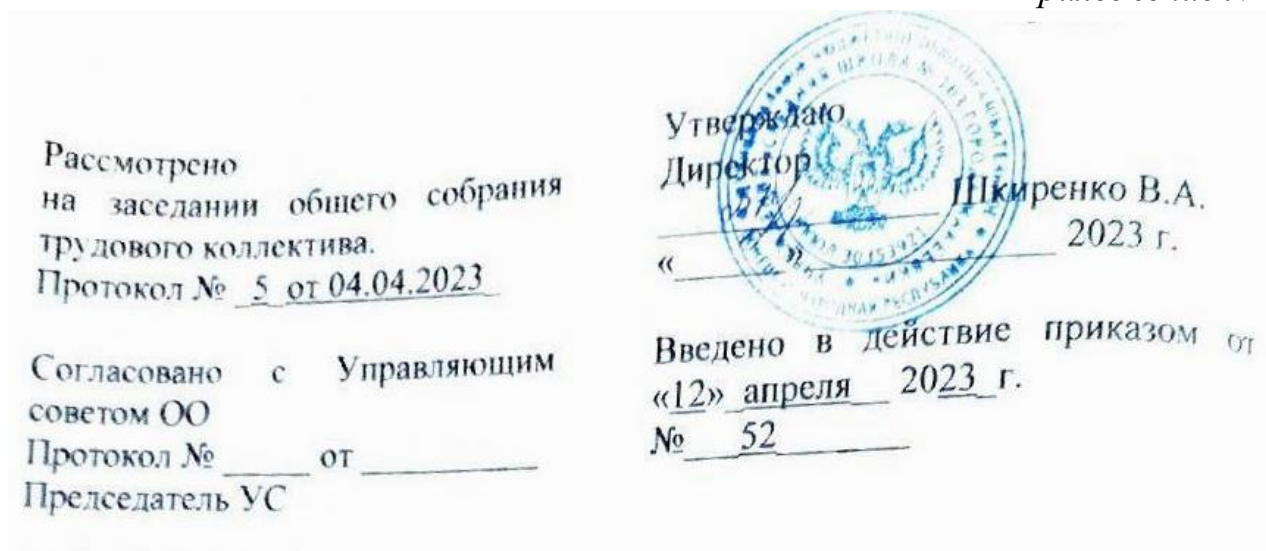 Рассмотрено
на заседании общего собрания
трудового коллектива.
Протокол № 5 от 04.04.2023
Согласовано с Управляющим
советом ОО
Протокол № _____ от __________
Председатель УС
Утверждаю
Директор
__________ Шкиренко В.А.
«______» __________ 2023 г.
Введено в действие приказом от
«12» апреля 2023 г.
№ 52
ШКОЛА № 103 ГОРОДА
НАРОДНАЯ РЕСПУБЛИКА